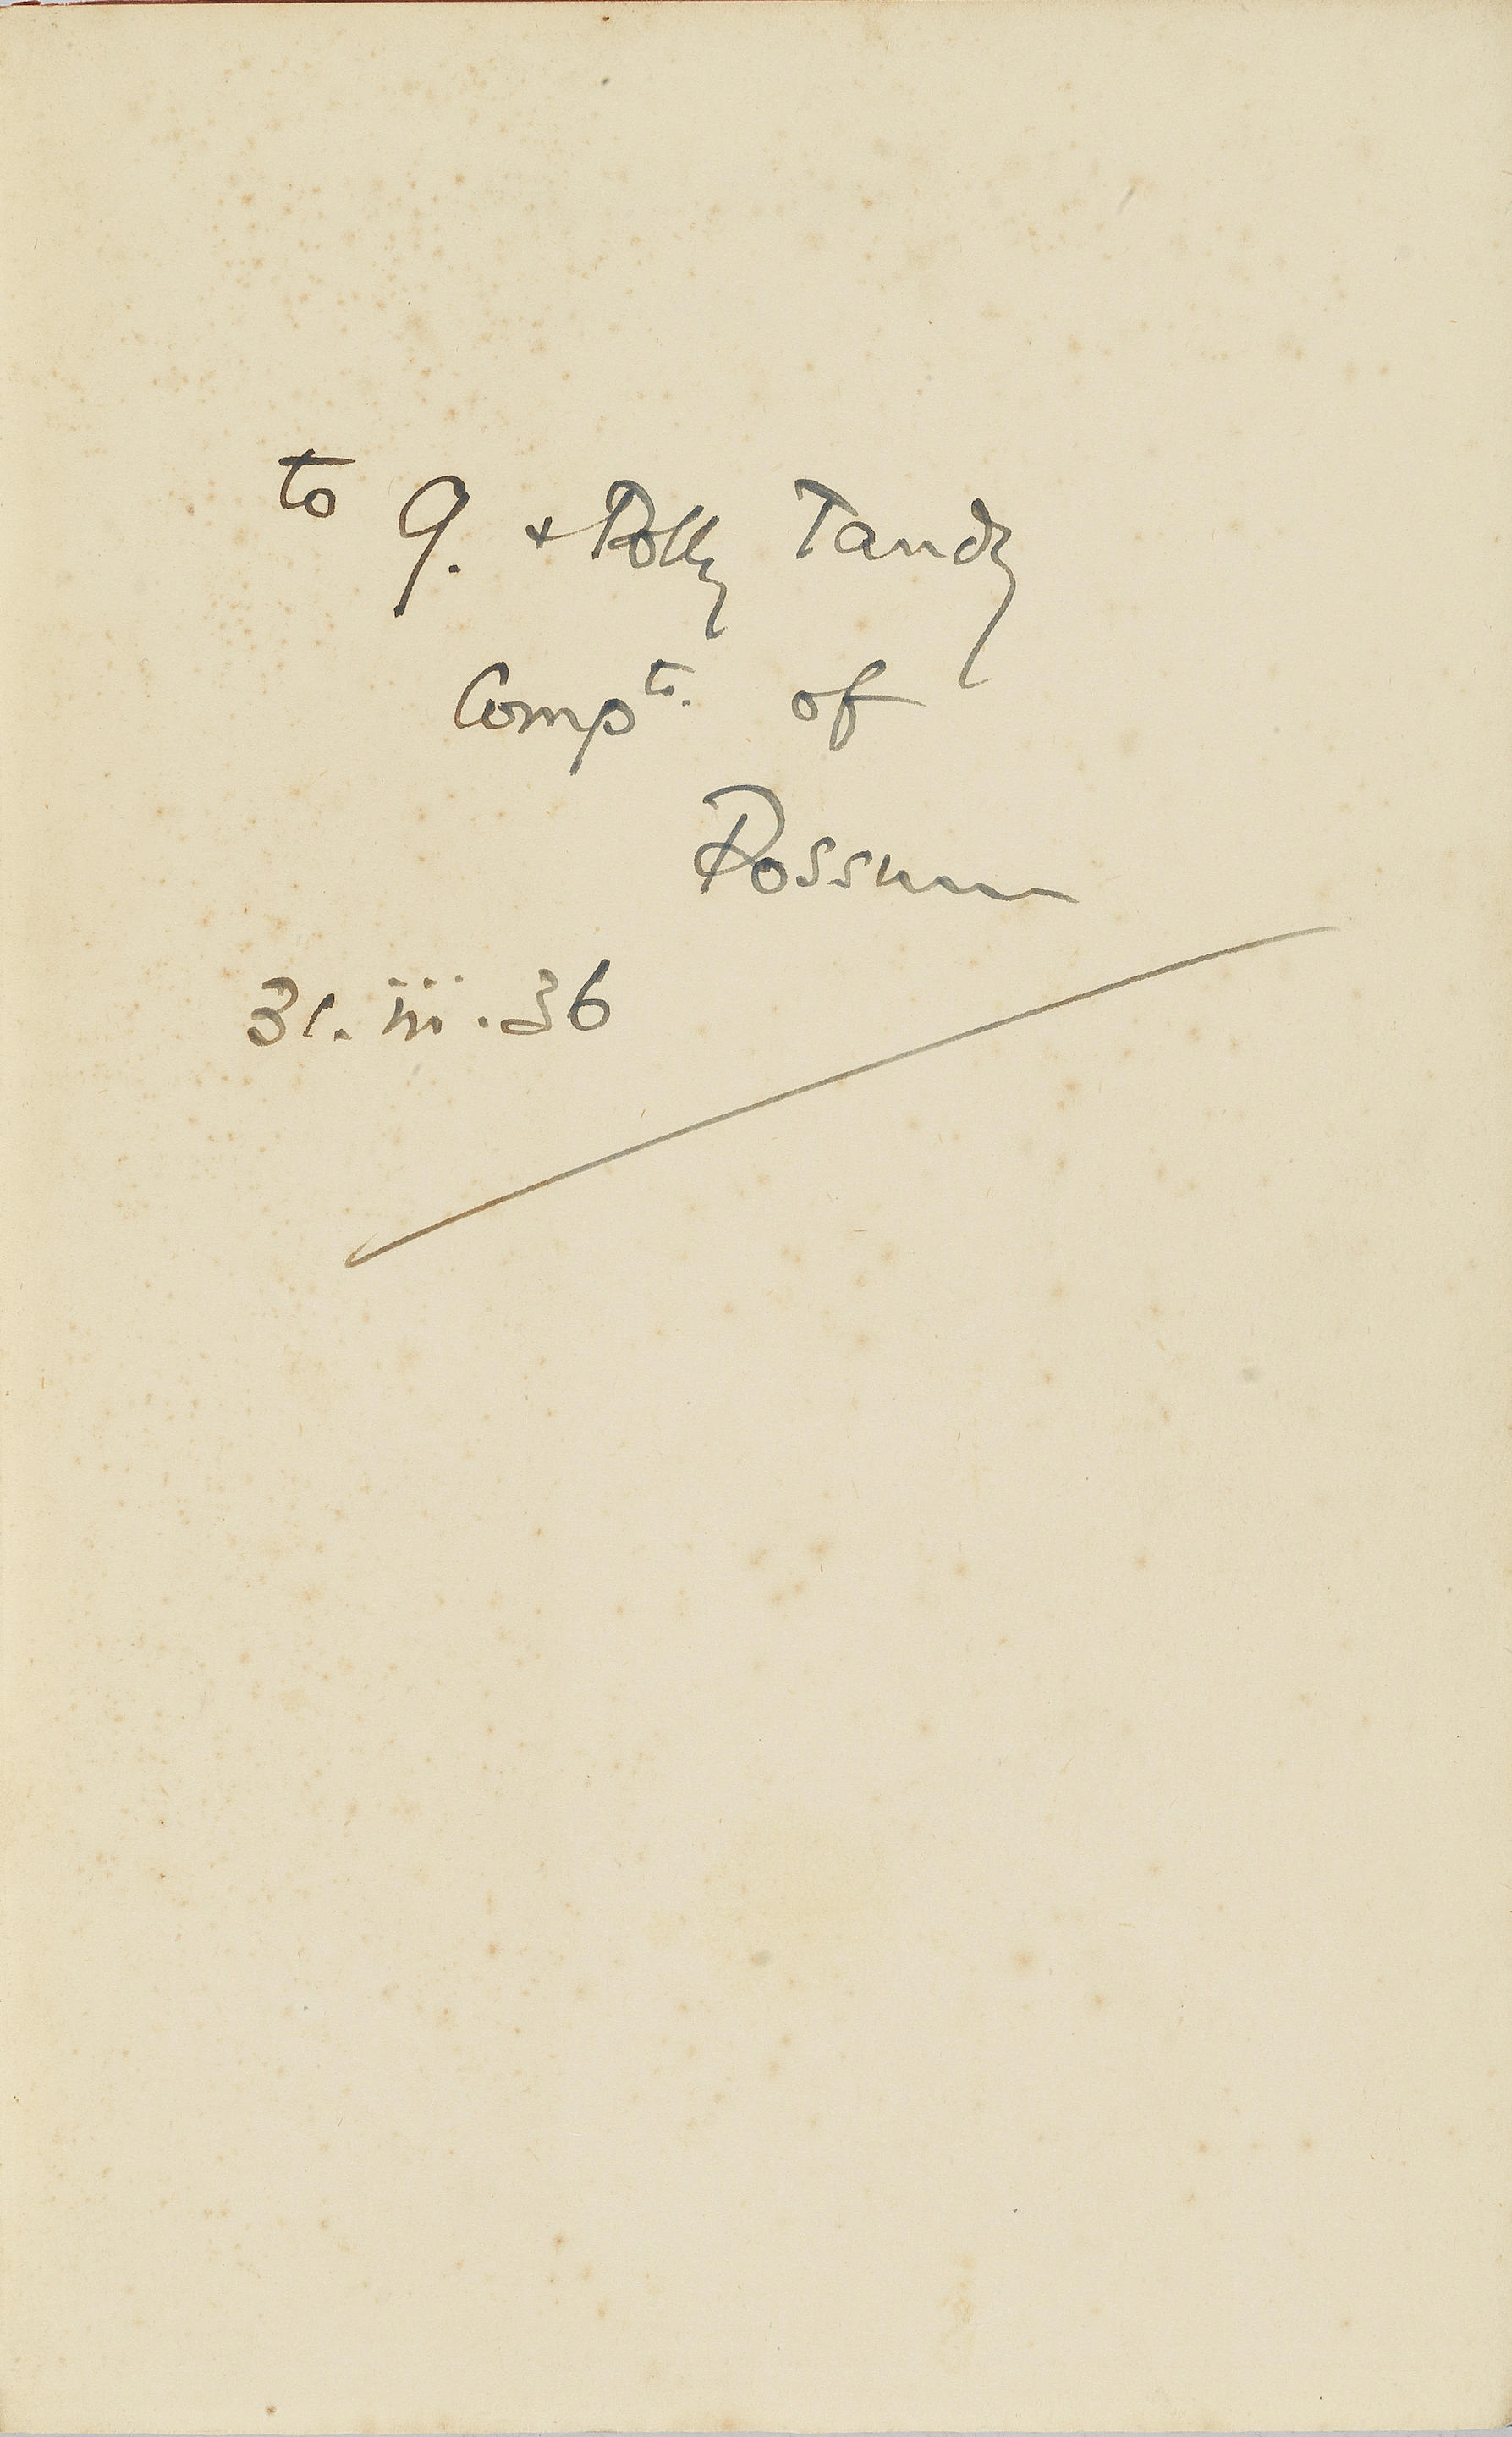 to J. + Polly Tandy
Compts. of
Possum
31.iii.36